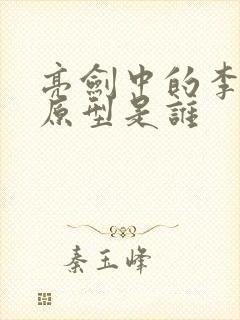 亮劍中的李
原型是誰
秦玉峰